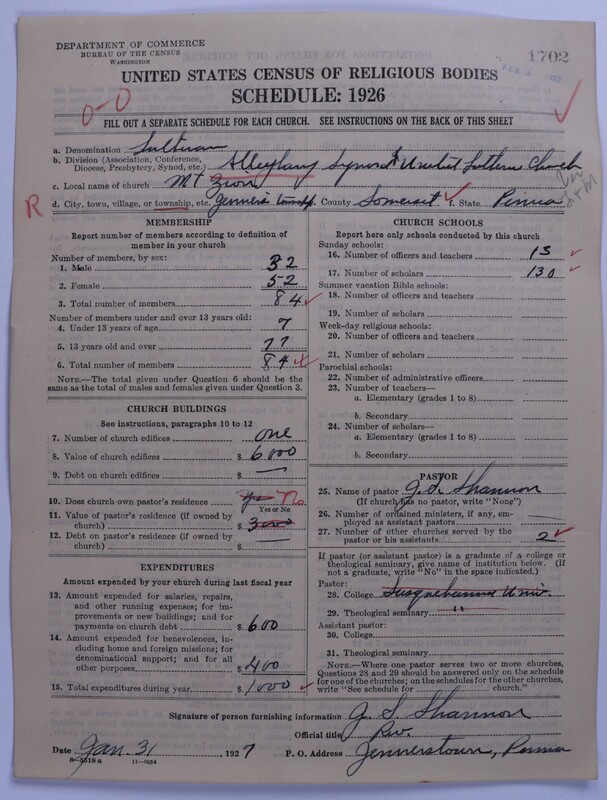 DEPARTMENT OF COMMERCE
BUREAU OF THE CENSUS
WASHINGTON
1702
UNITED STATES CENSUS OF RELIGIOUS BODIES
SCHEDULE: 1926
0-0
FILL OUT A SEPARATE SCHEDULE FOR EACH CHURCH. SEE INSTRUCTIONS ON THE BACK OF THIS SHEET
a. Denomination Lutheran
b. Division (Association, Conference, Diocese, Presbytery, Synod, etc.) Alleghany Synod United Lutheran Church
c. Local name of church Mt Zion
R d. City, town, village, or township, etc. Jenners township County Somerset f. State Penna
MEMBERSHIP
Report number of members according to definition of member in your church
Number of members, by sex:
1. Male 32
2. Female 52
3. Total number of members 84
Number of members under and over 13 years old:
4. Under 13 years of age 7
5. 13 years old and over 77
6. Total number of members 84
NOTE.—The total given under Question 6 should be the same as the total of males and females given under Question 3.
CHURCH BUILDINGS
See instructions, paragraphs 10 to 12
7. Number of church edifices one
8. Value of church edifices $ 6000
9. Debt on church edifices $ —
10. Does church own pastor's residence yes No
Yes or No
11. Value of pastor's residence (if owned by church) $ 3000
12. Debt on pastor's residence (if owned by church) $
EXPENDITURES
Amount expended by your church during last fiscal year
13. Amount expended for salaries, repairs, and other running expenses; for improvements or new buildings; and for payments on church debt $ 600
14. Amount expended for benevolences, including home and foreign missions; for denominational support; and for all other purposes $ 400
15. Total expenditures during year $ 1000
CHURCH SCHOOLS
Report here only schools conducted by this church
Sunday schools:
16. Number of officers and teachers 13
17. Number of scholars 130
Summer vacation Bible schools:
18. Number of officers and teachers
19. Number of scholars
Week-day religious schools:
20. Number of officers and teachers
21. Number of scholars
Parochial schools:
22. Number of administrative officers
23. Number of teachers—
a. Elementary (grades 1 to 8)
b. Secondary
24. Number of scholars—
a. Elementary (grades 1 to 8)
b. Secondary
PASTOR
25. Name of pastor J. S. Shannon
(If church has no pastor, write "None")
26. Number of ordained ministers, if any, employed as assistant pastors
27. Number of other churches served by the pastor or his assistants 2
If pastor (or assistant pastor) is a graduate of a college or theological seminary, give name of institution below. (If not a graduate, write "No" in the space indicated.)
Pastor:
28. College Susquehanna Univ.
29. Theological seminary "
Assistant pastor:
30. College
31. Theological seminary
NOTE.—Where one pastor serves two or more churches, Questions 28 and 29 should be answered only on the schedule for one of the churches; on the schedules for the other churches, write "See schedule for church."
Signature of person furnishing information J. S. Shannon
Official title Rev.
Date Jan. 31, 1927 P. O. Address Jennerstown, Penna
8—5518 a 11—0054